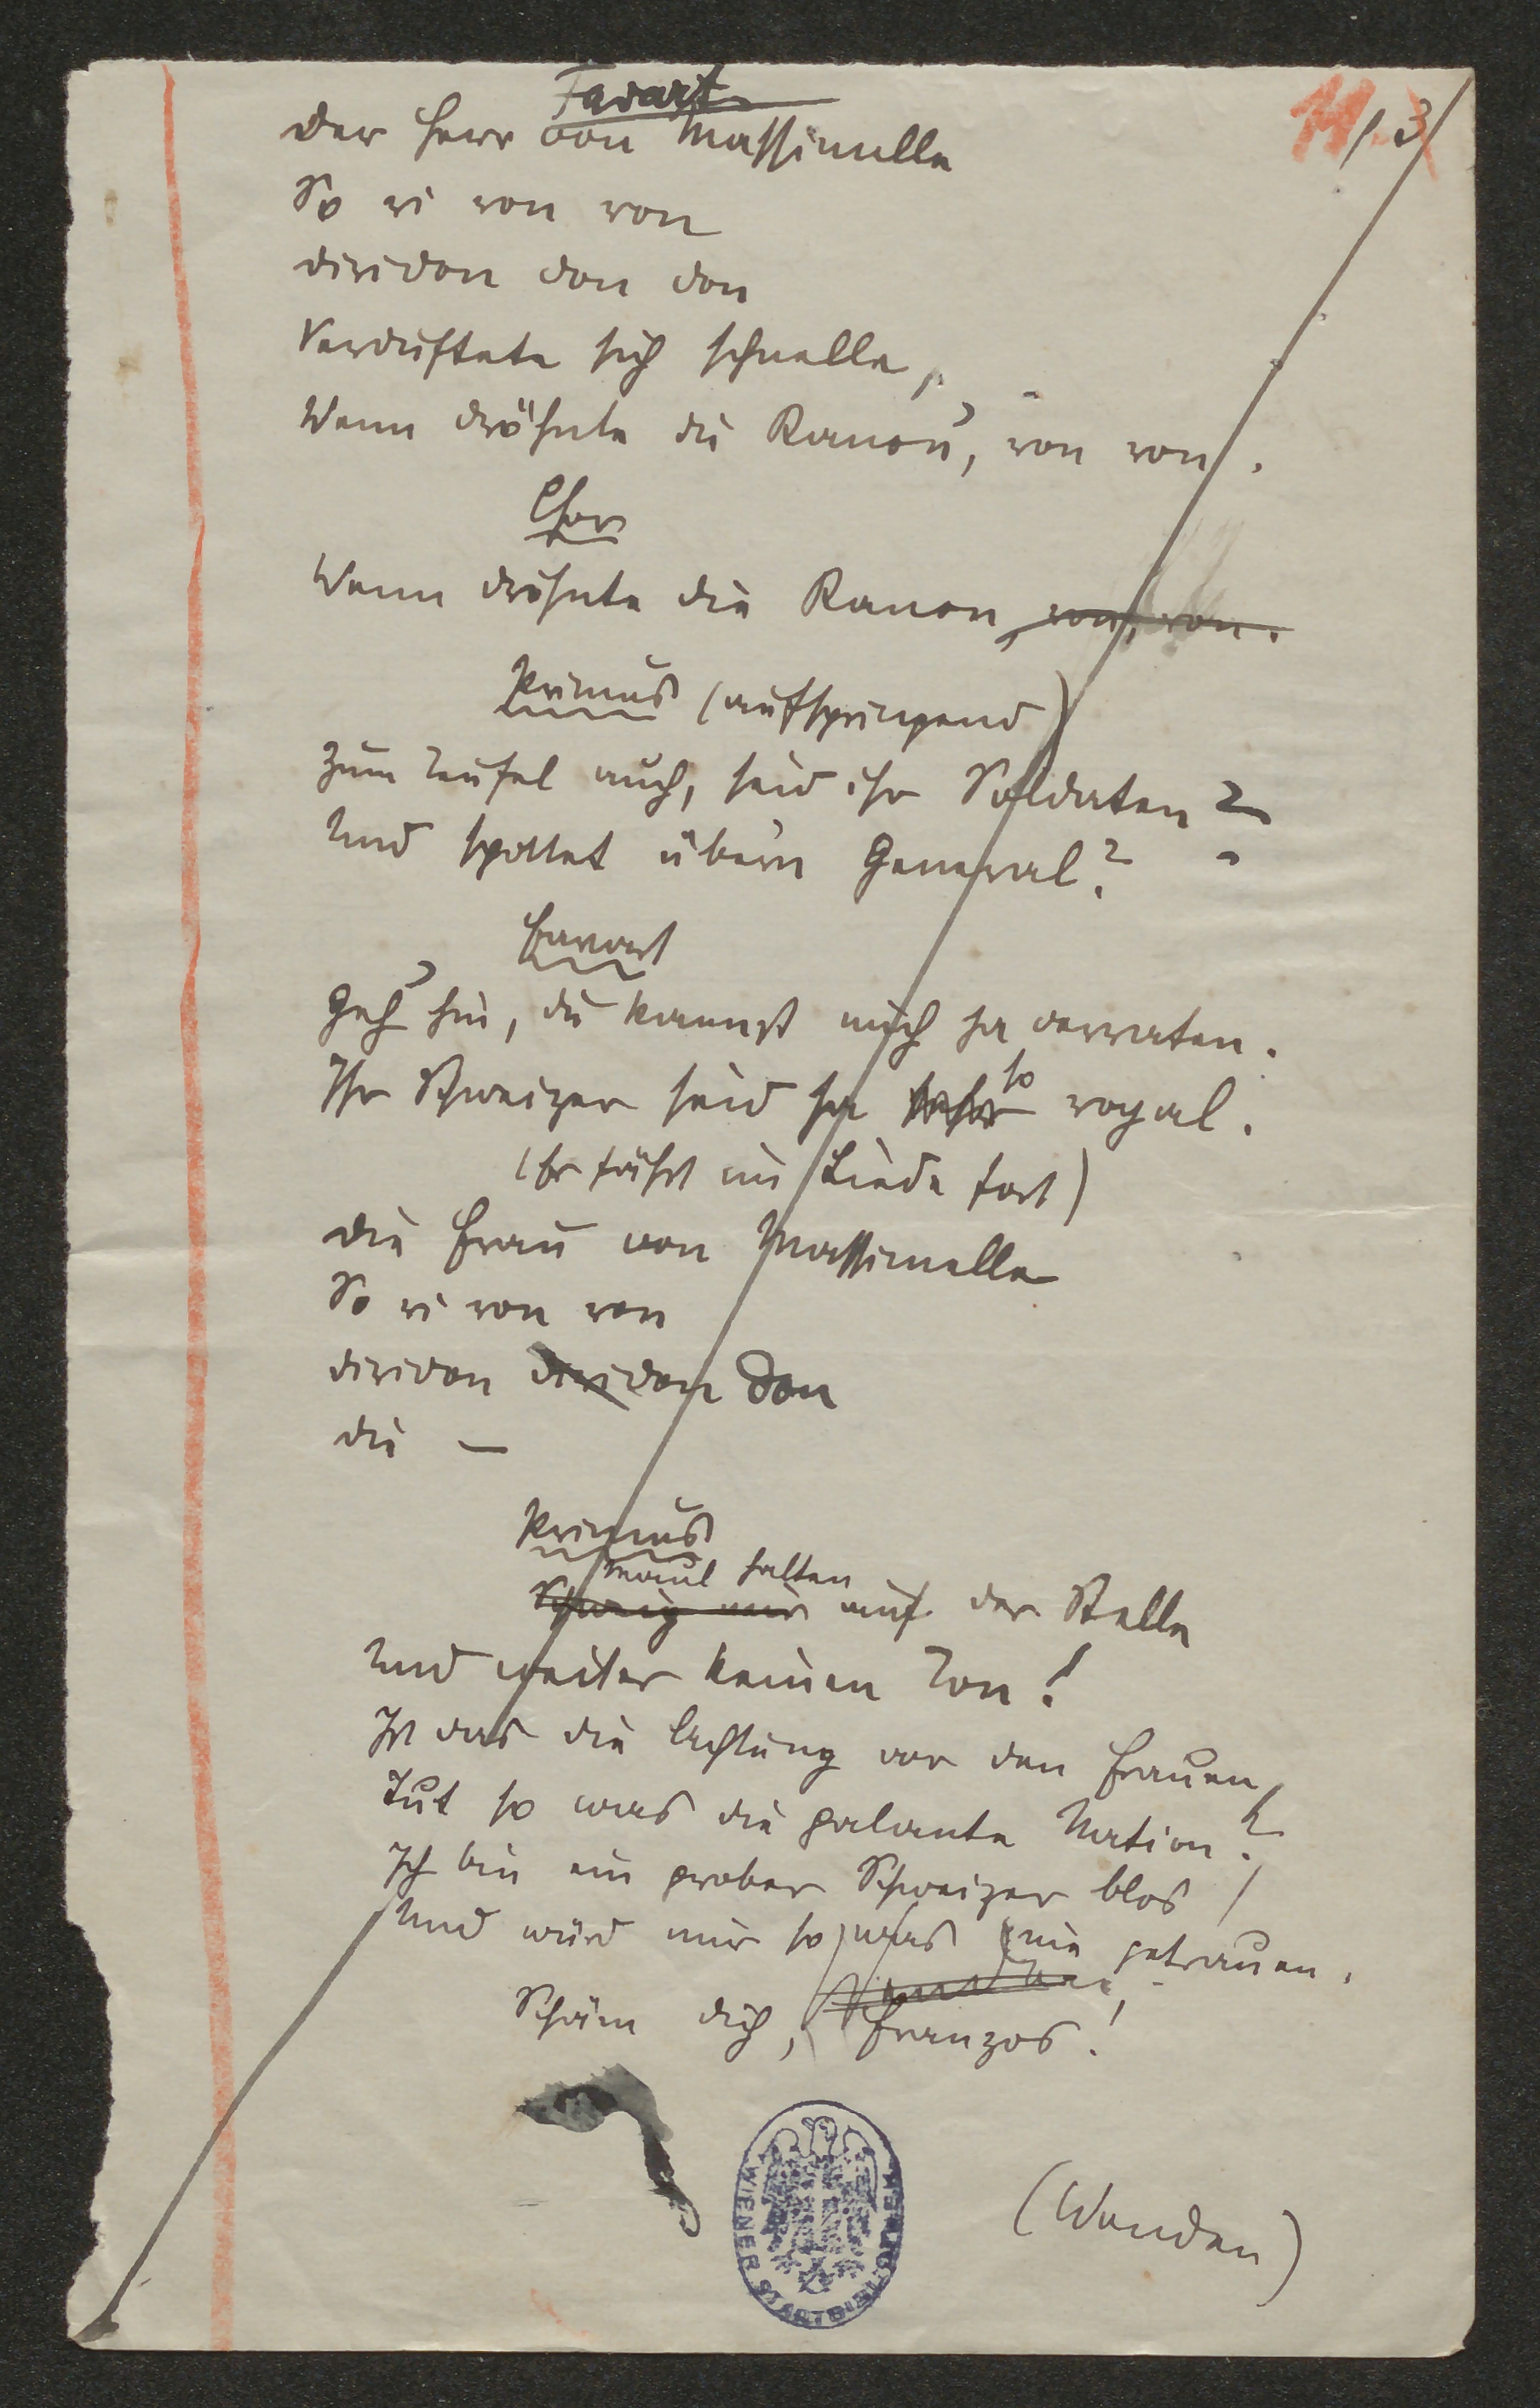 11/3
Favart
Der Herr von Massimelle
So ri ron ron
diridon don don
Verduftete sich schnelle,
Wenn dröhnte die Kanon', ron ron.
Chor
Wenn dröhnte die Kanon, ron, ron.
Primus (aufspringend)
Zum Teufel auch, seid ihr Soldaten?
Und spottet über'n General?
Favart
Geh' hin, du kannst mich ja verraten.
so
Ihr Schweizer seid ja sehr royal.
(Er fährt im Liede fort)
Die Frau von Massimelle
So ri ron ron
diridon diridon don
die —
Primus
Maul halten
Schweig mir auf der Stelle
Und weiter keinen Ton!
Ist das die Achtung vor den Frauen,
Tut so was die galante Nation?
Ich bin ein grober Schweizer blos
Und würd mir so was nie getrauen.
Schäm dich, Franzos!
(Wenden)
WIENER STADTBIBLIOTHEK